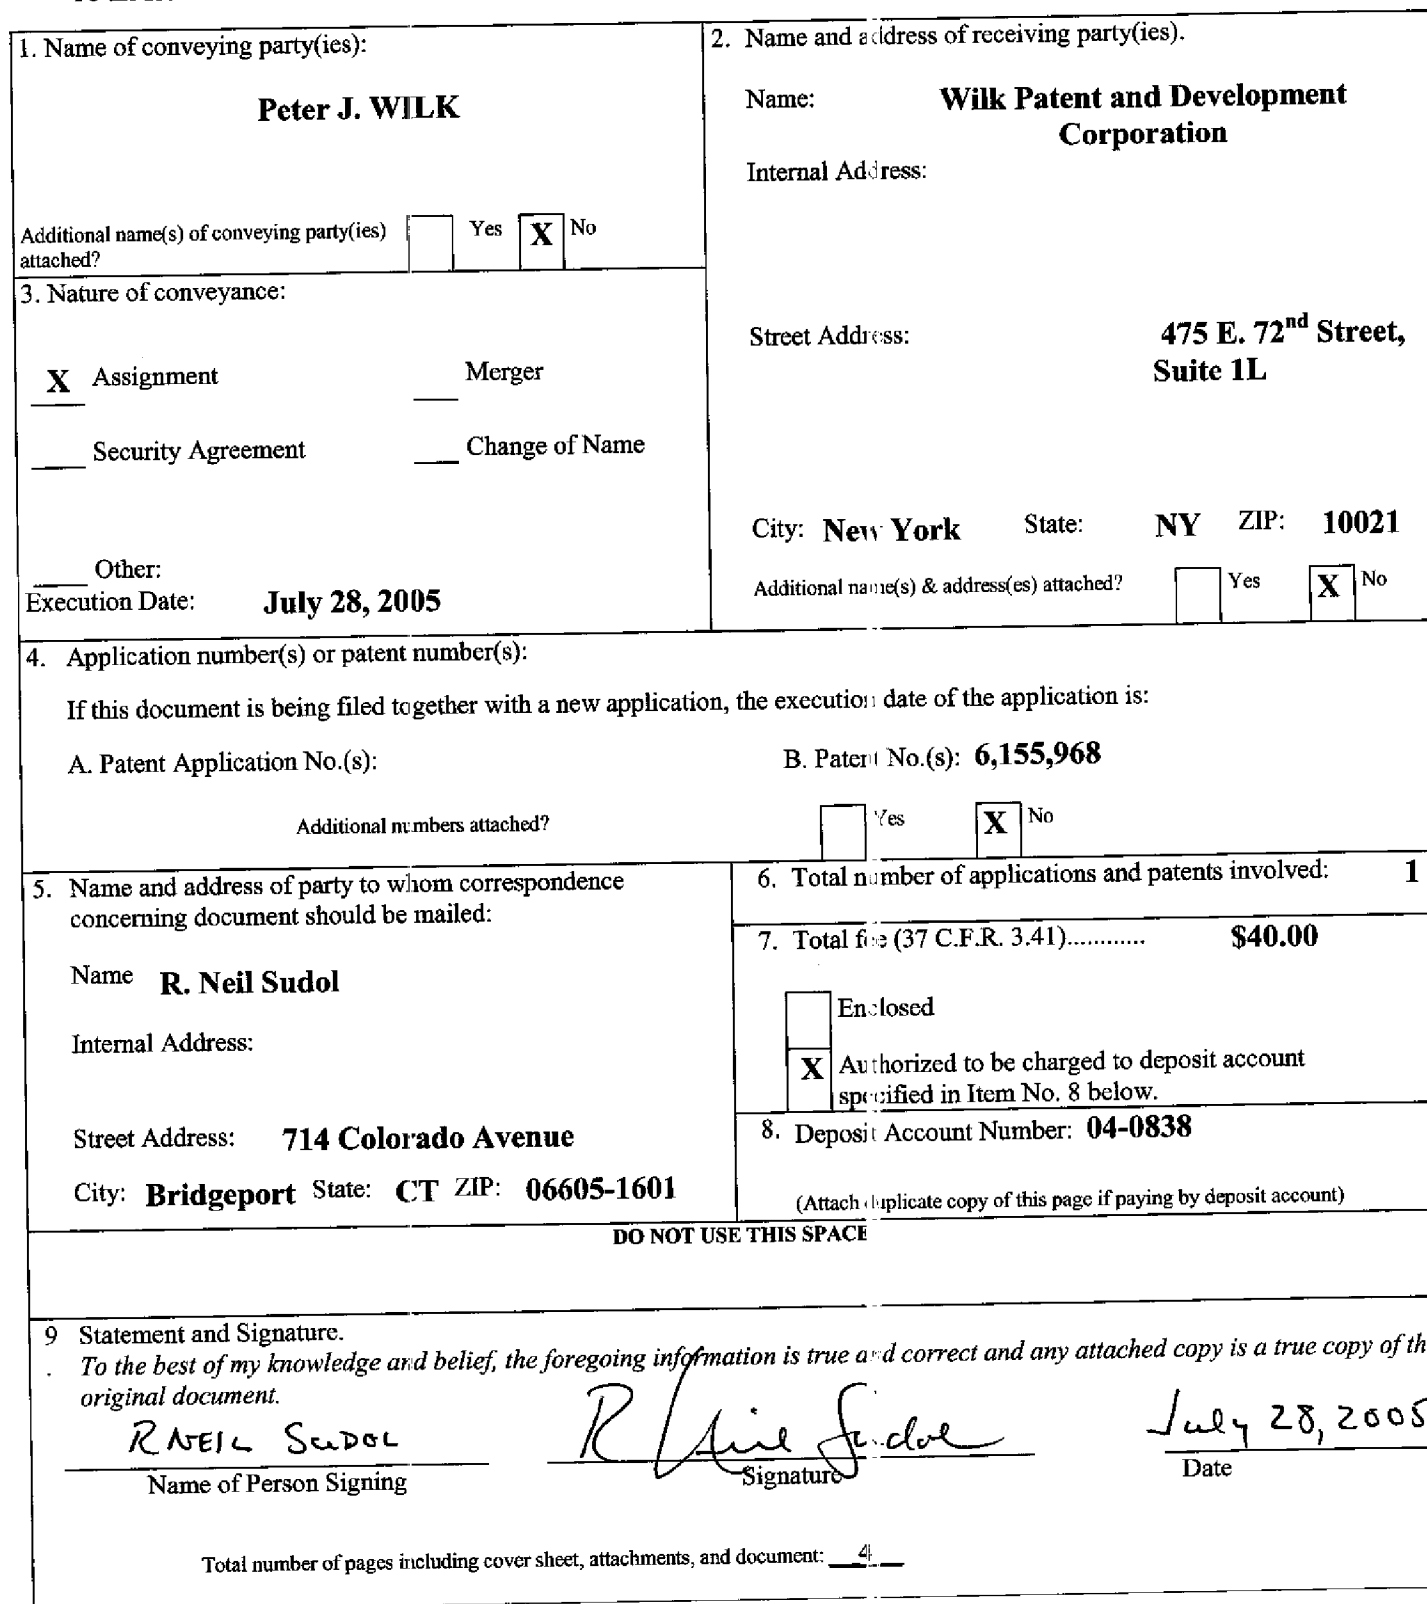 1. Name of conveying party(ies):
Peter J. WILK
Additional name(s) of conveying party(ies)
attached?
Yes
X
No
2. Name and address of receiving party(ies).
Name:
Wilk Patent and Development
Corporation
Internal Address:
Street Address:
475 E. 72nd Street,
Suite 1L
City: New York State: NY ZIP: 10021
Additional name(s) & address(es) attached?
Yes
X
No
3. Nature of conveyance:
X Assignment
Merger
Security Agreement
Change of Name
Other:
Execution Date: July 28, 2005
4. Application number(s) or patent number(s):
If this document is being filed together with a new application, the execution date of the application is:
A. Patent Application No.(s):
B. Patent No.(s): 6,155,968
Additional numbers attached?
Yes
X
No
5. Name and address of party to whom correspondence
concerning document should be mailed:
Name R. Neil Sudol
Internal Address:
Street Address: 714 Colorado Avenue
City: Bridgeport State: CT ZIP: 06605-1601
6. Total number of applications and patents involved: 1
7. Total fee (37 C.F.R. 3.41)............ $40.00
Enclosed
X Authorized to be charged to deposit account
specified in Item No. 8 below.
8. Deposit Account Number: 04-0838
(Attach duplicate copy of this page if paying by deposit account)
DO NOT USE THIS SPACE
9 Statement and Signature.
. To the best of my knowledge and belief, the foregoing information is true and correct and any attached copy is a true copy of th
original document.
R NEIL SUDOL
R Neil Sudol
July 28, 2005
Name of Person Signing
Signature
Date
Total number of pages including cover sheet, attachments, and document: 4